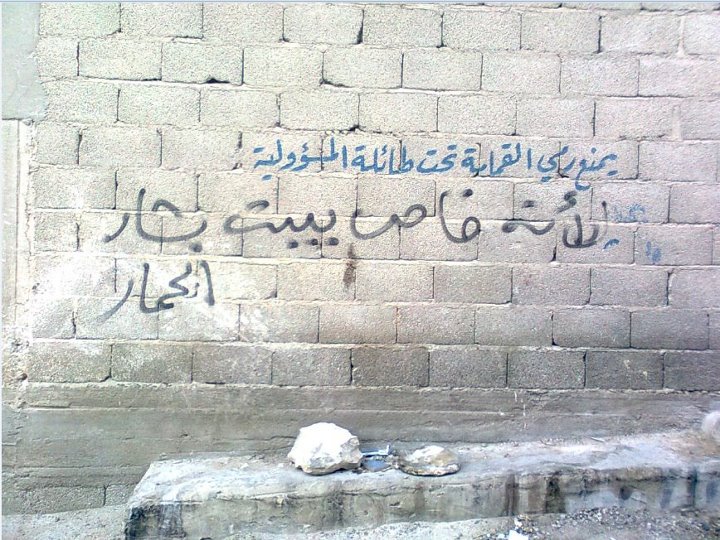 يمنع رمي القمامة تحت طائلة المسؤولية
لأنه خاص ببيت بشار
الحمار